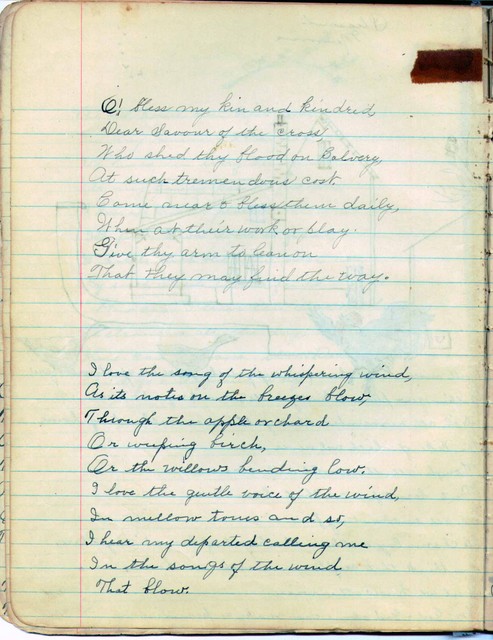 O! bless my kin and kindred,
Dear Savour of the cross,
Who shed thy blood on Calvery,
At such tremendous cost.
Come near & bless them daily,
When at their work or play.
Give thy arm to leanon
That they may find the way.
I love the song of the whispering wind,
As its notes on the breezes blow,
Through the apple orchard
Or weeping birch,
Or the willows bending low.
I love the gentle voice of the wind,
In mellow tones and so,
I hear my departed calling me
In the songs of the wind
That blow.